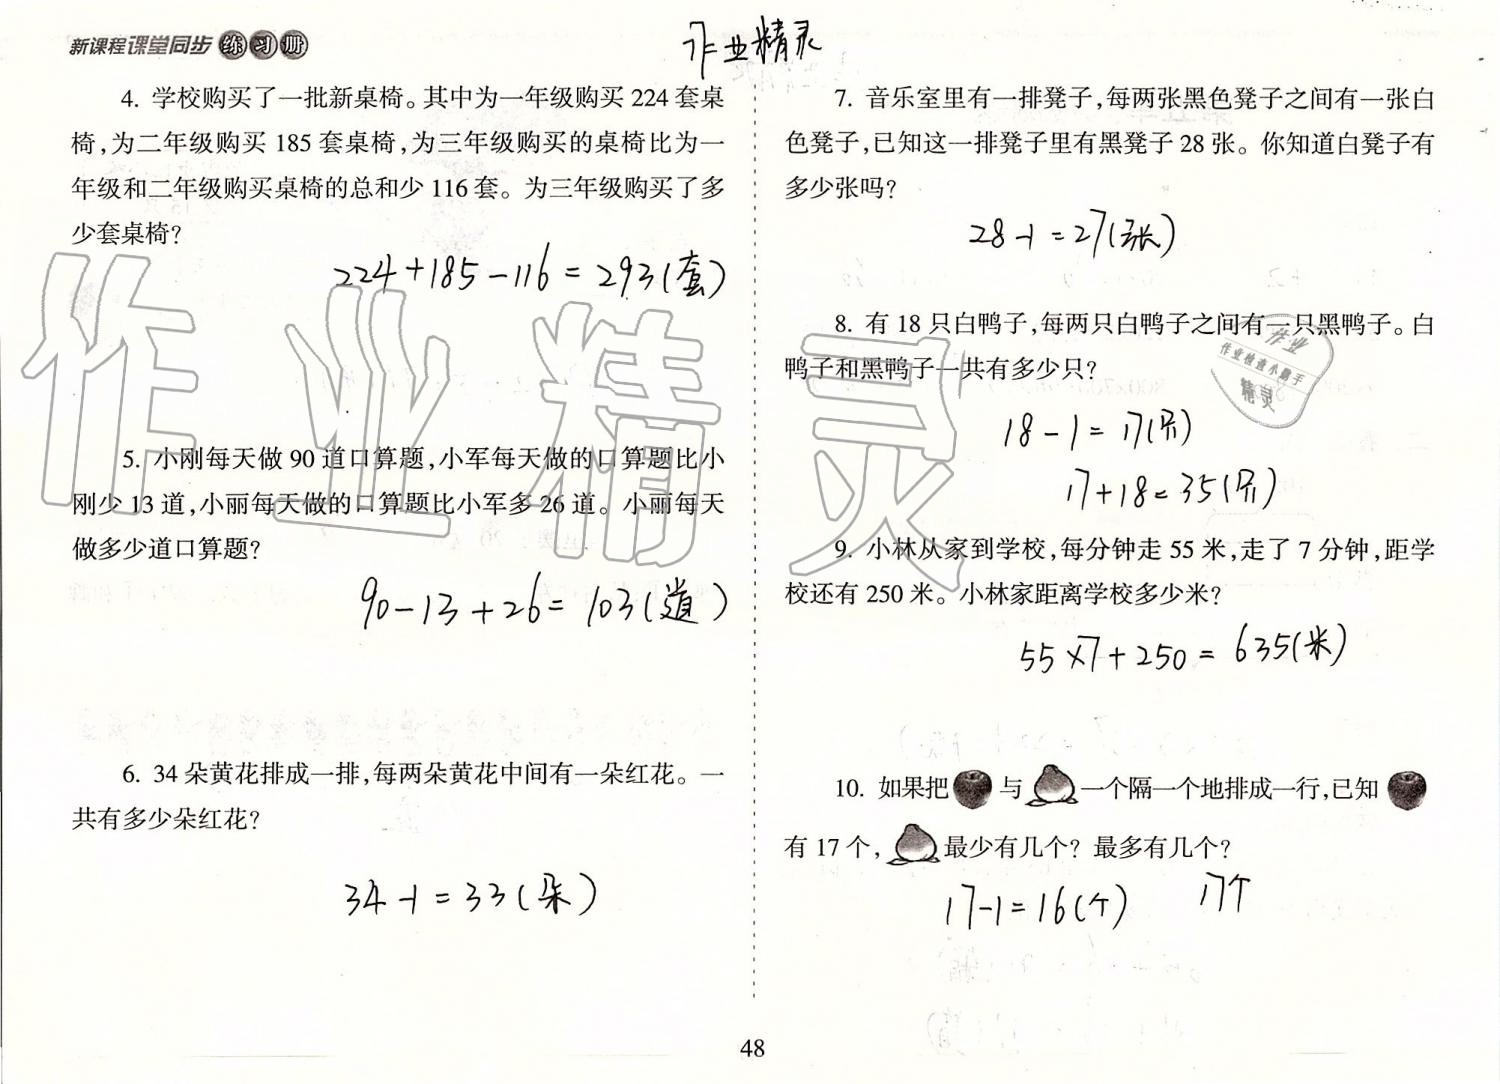 新课程课堂同步练习册
作业精灵
4. 学校购买了一批新桌椅。其中为一年级购买 224 套桌
椅,为二年级购买 185 套桌椅,为三年级购买的桌椅比为一
年级和二年级购买桌椅的总和少 116 套。为三年级购买了多
少套桌椅?
224+185-116=293(套)
5. 小刚每天做 90 道口算题,小军每天做的口算题比小
刚少 13 道,小丽每天做的口算题比小军多 26 道。小丽每天
做多少道口算题?
90-13+26=103(道)
6. 34 朵黄花排成一排,每两朵黄花中间有一朵红花。一
共有多少朵红花?
34-1=33(朵)
7. 音乐室里有一排凳子,每两张黑色凳子之间有一张白
色凳子,已知这一排凳子里有黑凳子 28 张。你知道白凳子有
多少张吗?
28-1=27(张)
8. 有 18 只白鸭子,每两只白鸭子之间有一只黑鸭子。白
鸭子和黑鸭子一共有多少只?
18-1=17(只)
17+18=35(只)
9. 小林从家到学校,每分钟走 55 米,走了 7 分钟,距学
校还有 250 米。小林家距离学校多少米?
55×7+250=635(米)
10. 如果把 与 一个隔一个地排成一行,已知
有 17 个, 最少有几个? 最多有几个?
17-1=16(个) 17个
作业精灵
作业
作业检查小助手
精灵
48